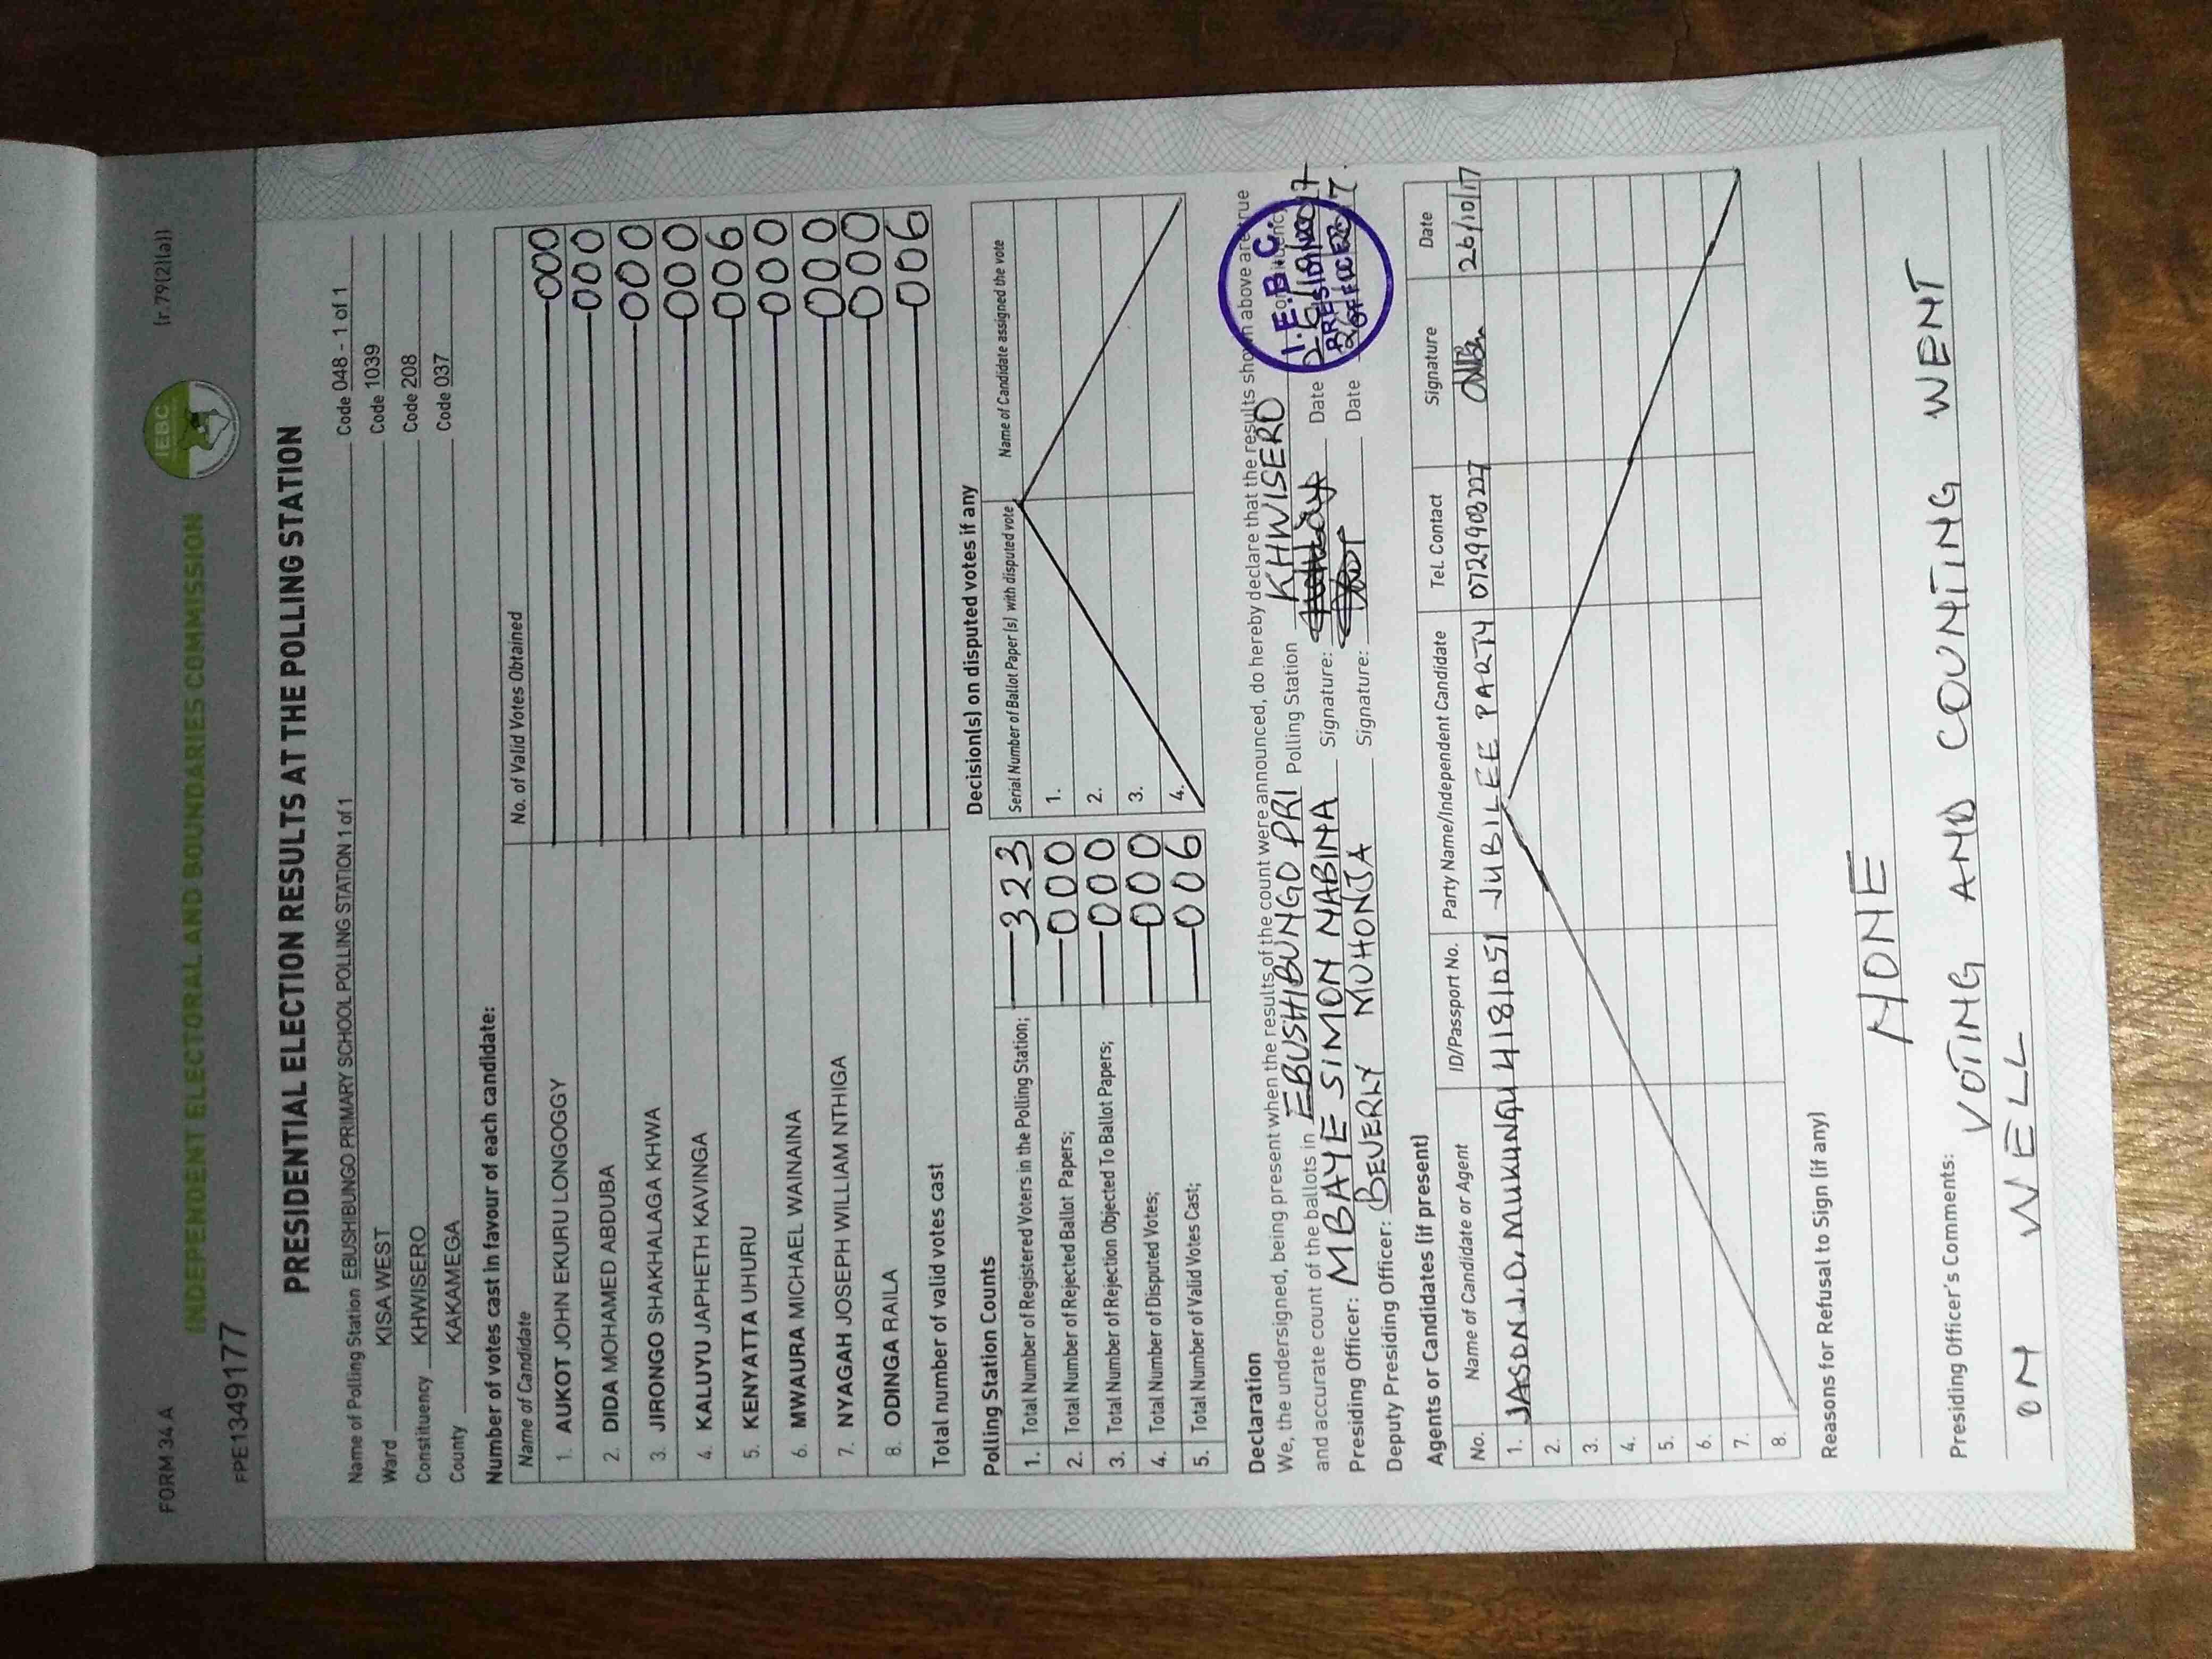 FORM 34 A
(r.79(2)(a))
INDEPENDENT ELECTORAL AND BOUNDARIES COMMISSION
IEBC
FPE1349177
PRESIDENTIAL ELECTION RESULTS AT THE POLLING STATION
Name of Polling Station EBUSHIBUNGO PRIMARY SCHOOL POLLING STATION 1 of 1 Code 048 - 1 of 1
Ward KISA WEST Code 1039
Constituency KHWISERO Code 208
County KAKAMEGA Code 037
Number of votes cast in favour of each candidate:
Name of Candidate No. of Valid Votes Obtained
1. AUKOT JOHN EKURU LONGOGGY 000
2. DIDA MOHAMED ABDUBA 000
3. JIRONGO SHAKHALAGA KHWA 000
4. KALUYU JAPHETH KAVINGA 000
5. KENYATTA UHURU 006
6. MWAURA MICHAEL WAINAINA 000
7. NYAGAH JOSEPH WILLIAM NTHIGA 000
8. ODINGA RAILA 000
Total number of valid votes cast 006
Polling Station Counts
1. Total Number of Registered Voters in the Polling Station; 323
2. Total Number of Rejected Ballot Papers; 000
3. Total Number of Rejection Objected To Ballot Papers; 000
4. Total Number of Disputed Votes; 000
5. Total Number of Valid Votes Cast; 006
Decision(s) on disputed votes if any
Serial Number of Ballot Paper (s) with disputed vote Name of Candidate assigned the vote
1.
2.
3.
4.
Declaration
We, the undersigned, being present when the results of the count were announced, do hereby declare that the results shown above are true
and accurate count of the ballots in EBUSHIBUNGO PRI Polling Station KHWISERO
Presiding Officer: MBAYE SIMON NABINA Signature: Date
Deputy Presiding Officer: BEVERLY MUHONJA Signature: Date
I.E.B.C.
PRESIDING
OFFICER
Agents or Candidates (if present)
No. Name of Candidate or Agent ID/Passport No. Party Name/Independent Candidate Tel. Contact Signature Date
1. JASON J.O. MUKUNGU 4181051 JUBILEE PARTY 0729908227 26/10/17
2.
3.
4.
5.
6.
7.
8.
Reasons for Refusal to Sign (if any)
NONE
Presiding Officer's Comments: VOTING AND COUNTING WENT
ON WELL